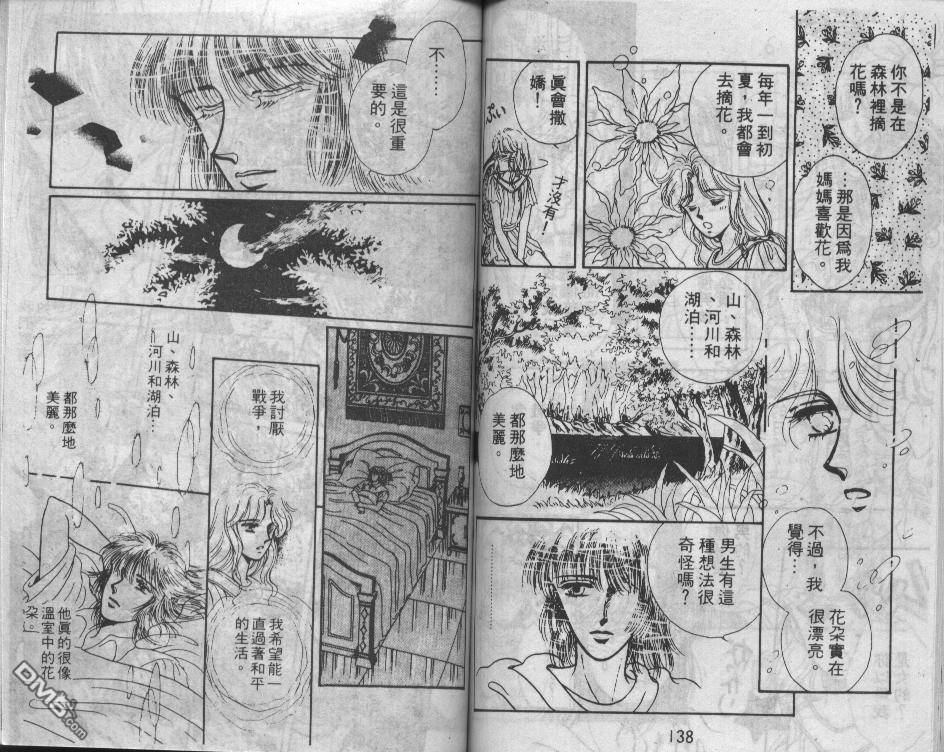 你不是在
森林裡摘
花嗎？
…那是因爲我
媽媽喜歡花。
每年一到初
夏，我都會
去摘花。
眞會撒
嬌！
ぷい
才沒有！
山、森林
、河川和
湖泊……
都那麼地
美麗。
不過，我
覺得…
花朶實在
很漂亮。
男生有這
種想法很
奇怪嗎？
138
不……
這是很重
要的。
我討厭
戰爭，
我希望能一
直過著和平
的生活。
山、森林、
河川和湖泊…
都那麼地
美麗。
他眞的很像
溫室中的花
朶。」
DM5.com